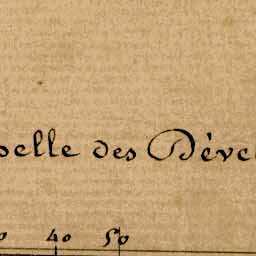 pelle des Dével
0 40 50